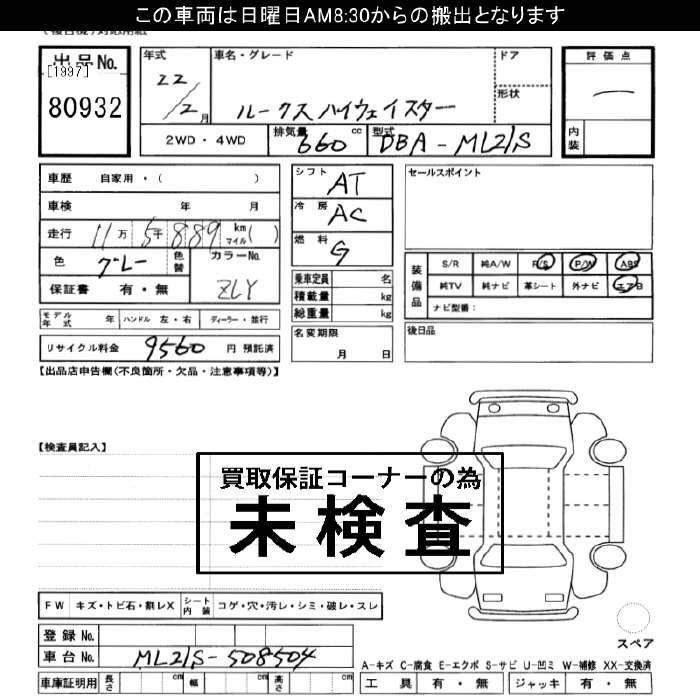 この車両は日曜日AM8:30からの搬出となります
出品No.
[1997]
80932
年式
22/2月
車名・グレード
ルークスハイウェイスター
ドア
形状
2WD・4WD
排気量 660 cc
型式 DBA-ML21S
評価点
―
内装
車歴 自家用・( )
車検 年 月
走行 11万5千889 km マイル( )
色 グレー 色替 カラーNo. ZLY
保証書 有・無
モデル年式 年 ハンドル 左・右 ディーラー・並行
リサイクル料金 9560 円 預託済
シフト AT
冷房 AC
燃料 G
乗車定員 名
積載量 kg
総重量 kg
名変期限
月 日
セールスポイント
装備品
S/R 純A/W P/S P/W ABS
純TV 純ナビ 革シート 外ナビ エアB
ナビ型番:
後日品
【出品店申告欄(不良箇所・欠品・注意事項等)】
【検査員記入】
買取保証コーナーの為
未検査
FW キズ・トビ石・割レX シート内装 コゲ・穴・汚レ・シミ・破レ・スレ
登録No.
車台No. ML21S-508504
車庫証明用 長さ cm 幅 cm 高さ cm
スペア
A-キズ C-腐食 E-エクボ S-サビ U-凹ミ W-補修 XX-交換済
工具 有・無 ジャッキ 有・無